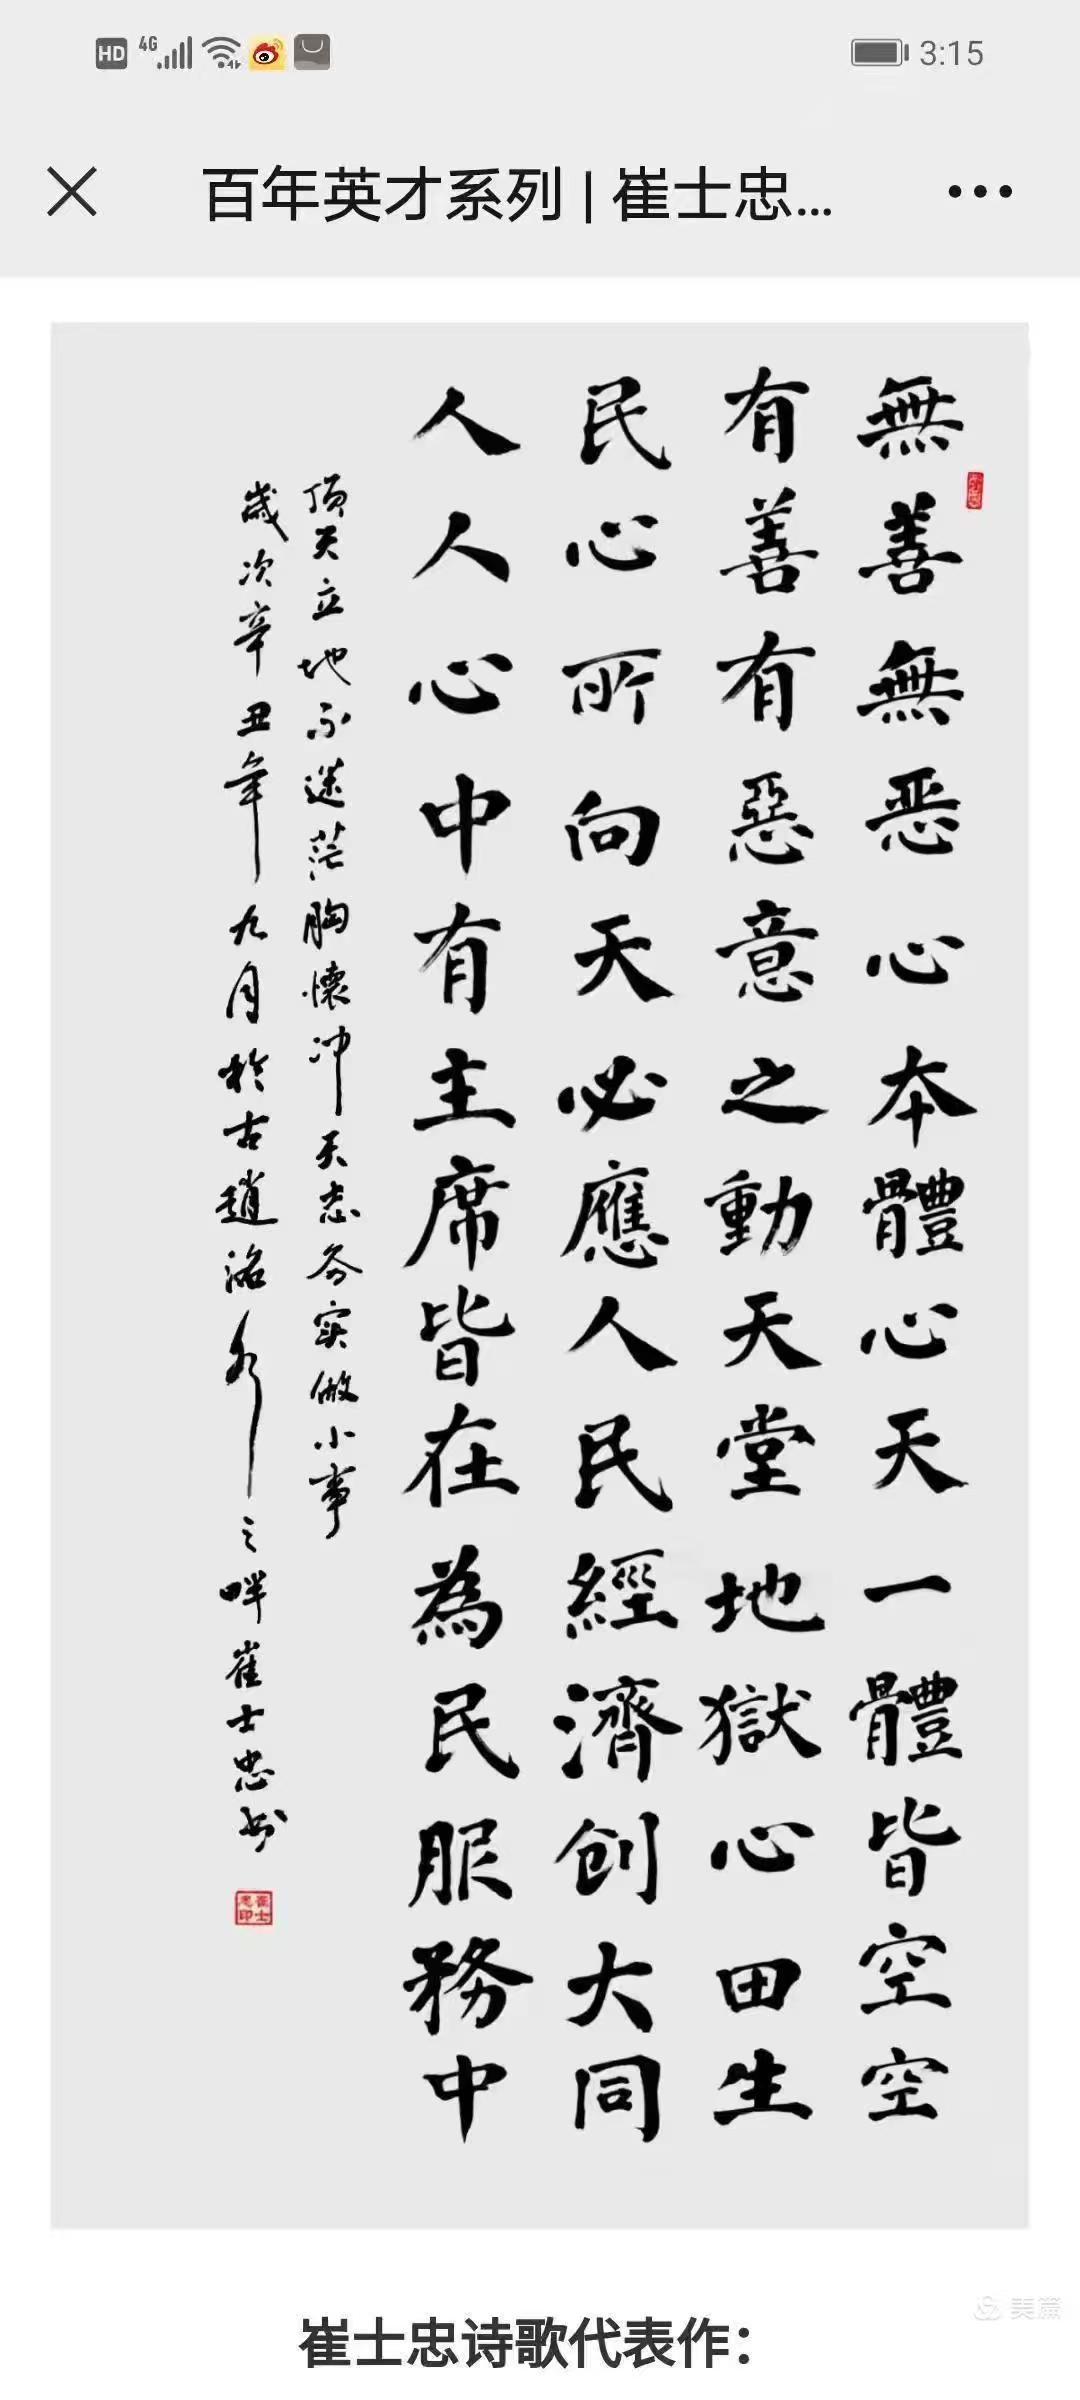 HD 4G 3:15
百年英才系列 | 崔士忠...
無善無恶心本體心天一體皆空空
有善有惡意之動天堂地獄心田生
民心所向天必應人民經濟创大同
人人心中有主席皆在為民服務中
顶天立地不迷茫胸懷冲天志务实做小事
歲次辛丑年九月於古趙洺水之畔崔士忠书
崔士忠印
崔士忠诗歌代表作：
美篇